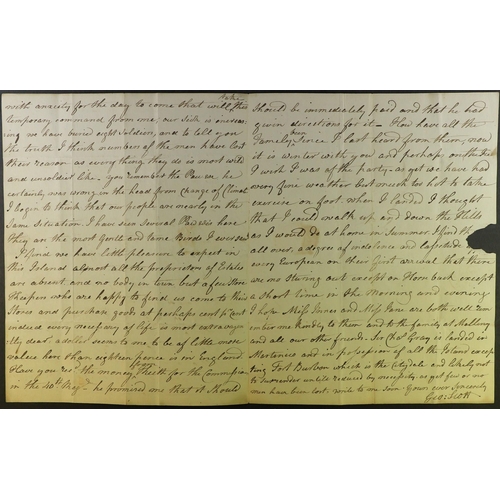 with anxiety for the day to come that will take this
temporary command from me; our sick is increas
ing we have buried eight Soldiers, and to tell you
the truth I think numbers of the men have lost
their reason as everything they do is most wild
and unsoldier like. you remember the Parson he
certainly was wrong in the head from change of Climate
I begin to think that our people are nearly in the
Same Situation. I have seen several here
they are the most gentle and tame Birds I ever saw
I find we have little pleasure to expect in
this Island almost all the proprietors of Estates
are absent and no body in town but a few Store
Keepers who are happy to find us come to their
Stores and purchase goods at perhaps cent pr Cent
indeed every necessary of life is most extravagan
tly dear, a dollar seems to me to be of little more
value here than eighteen pence is in England.
Have you recd the money of Keith for the Commission
in the 40th Regt he promised me that it should
should be immediately paid and that he had
given directions for it — How have all the
Family been since I last heard from them, now
it is winter with you and perhaps on the
I wish I was of the party — as yet we have had
every fine weather but much too hot to take
exercise on foot when I landed I thought
that I could walk up and down the Hills
as I would do at home in Summer. I find th
all over. a degree of indolence and
every European on their first arrival that there
are no stirring out except on Horseback except
a short time in the morning and evening
I hope Miss Janes and Miss Jane are both well rem
ember me kindly to them and to the family at
and all our other friends. Sir Chas Gray is landed in
Martinico and in possession of all the Island excep
ting Fort Burbon which is the Citydale and likely not
to Surrender until reduced by necessity, as yet few or no
men have been lost. write to me soon. Yours ever Sincerely
Geo: Scott